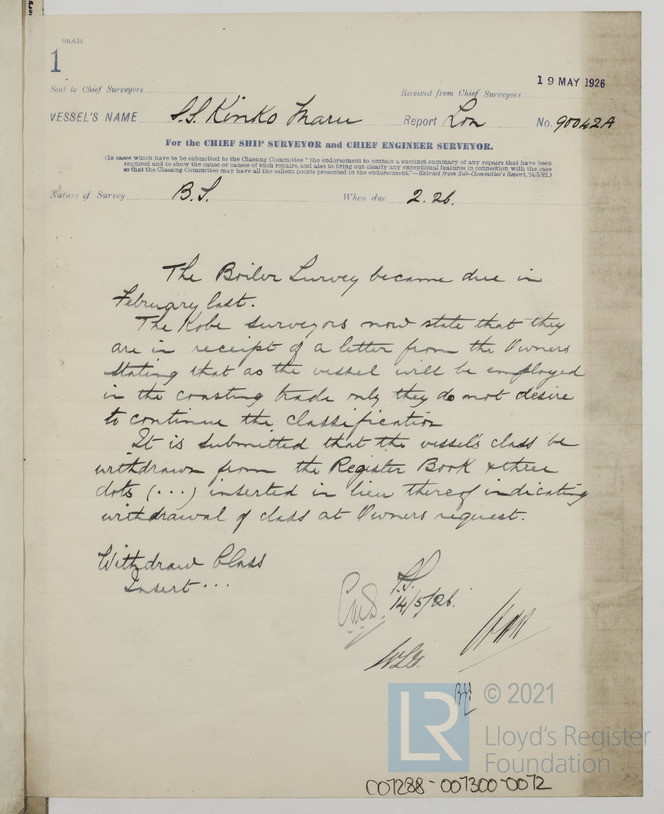 1
Sent to Chief Surveyors
Received from Chief Surveyors
19 MAY 1926
VESSEL'S NAME S.S. Kinko Maru Report Lon No. 90042A
For the CHIEF SHIP SURVEYOR and CHIEF ENGINEER SURVEYOR.
(In cases which have to be submitted to the Classing Committee "the endorsement to contain a succinct summary of any repairs that have been
required and to show the cause or causes of such repairs, and also to bring out clearly any exceptional features in connection with the case
so that the Classing Committee may have all the salient points presented in the endorsement."—Extract from Sub-Committee's Report,
Nature of Survey B.S. When due 2.26.
The Boiler Survey became due in
February last.
The Kobe Surveyors now state that they
are in receipt of a letter from the Owners
stating that as the vessel will be employed
in the coasting trade only they do not desire
to continue the classification
It is submitted that the vessel's class be
withdrawn from the Register Book & three
dots (...) inserted in lieu thereof indicating
withdrawal of class at Owners request.
Withdraw Class
Insert ...
14/5/26.
LR
© 2021
Lloyd's Register
Foundation
007288-007300-0072